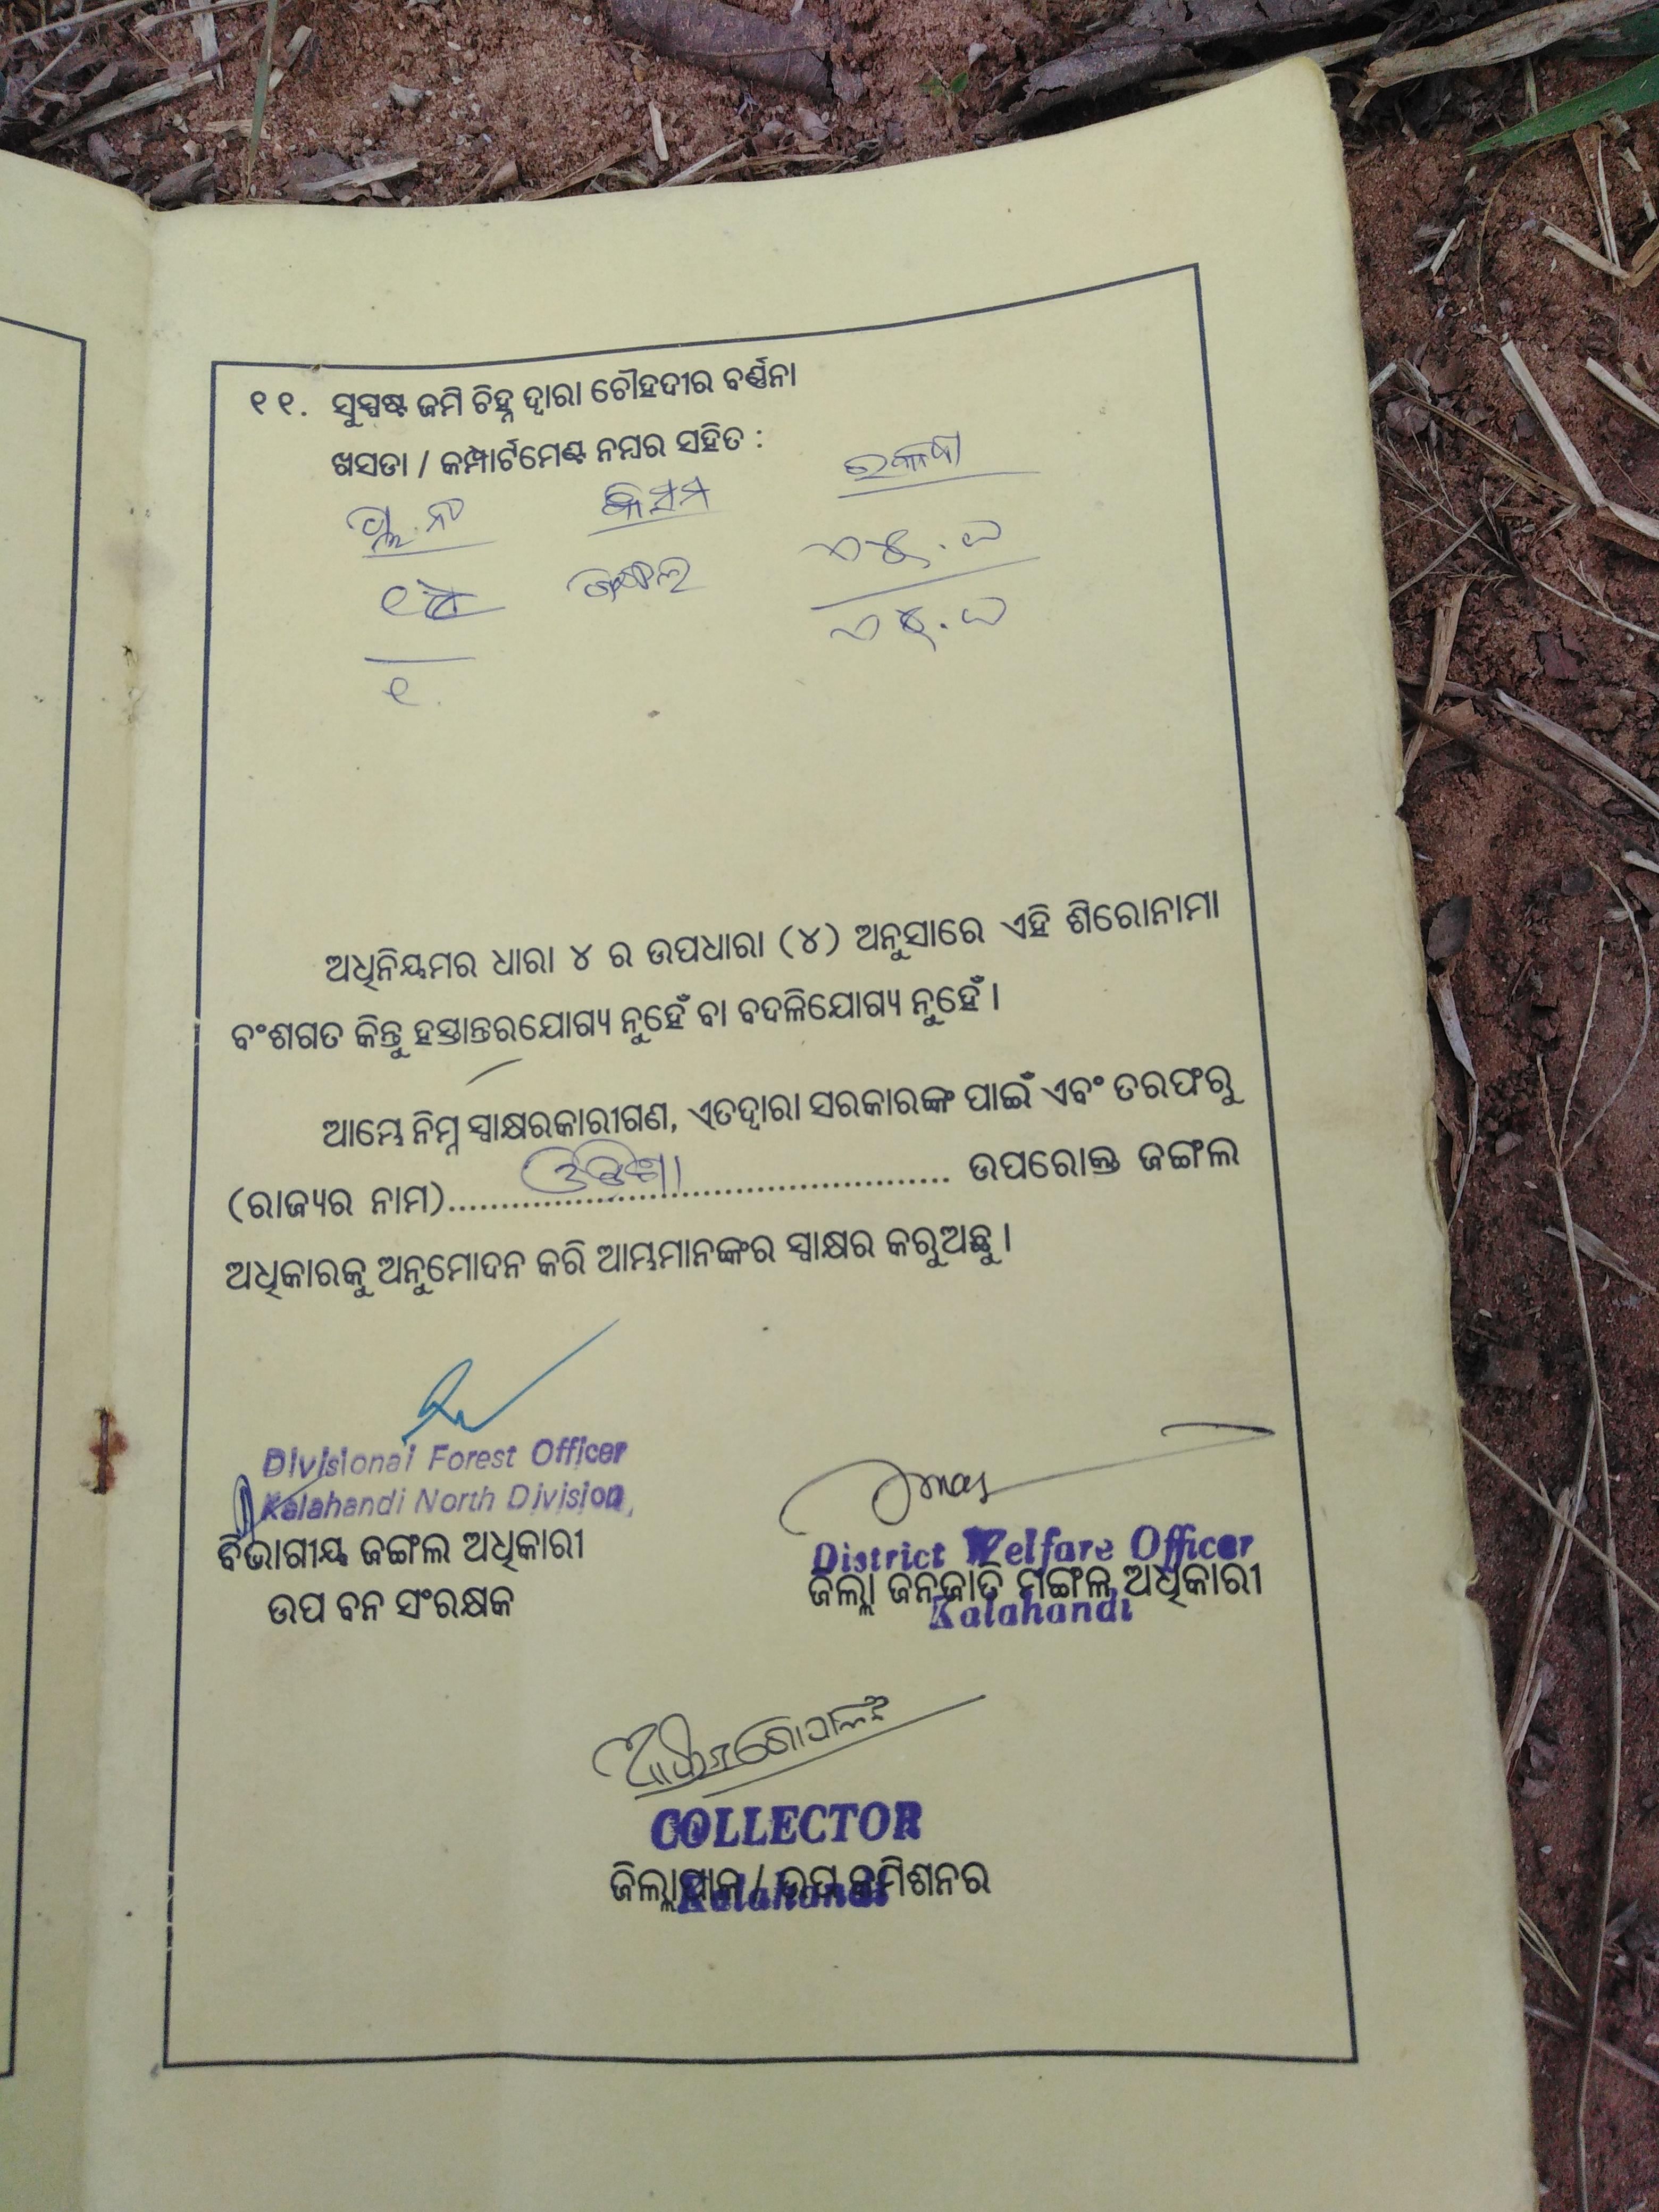 ୧୧. ସୁସ୍ପଷ୍ଟ ଜମି ଚିହ୍ନ ଦ୍ୱାରା ଚୌହଦୀର ବର୍ଣ୍ଣନା
ଖସଡା / କମ୍ପାର୍ଟମେଣ୍ଟ ନମ୍ବର ସହିତ :
ପ୍ଲ.ନଂ କିସମ ରକବା
ଜଙ୍ଗଲ
୧
ଅଧିନିୟମର ଧାରା ୪ ର ଉପଧାରା (୪) ଅନୁସାରେ ଏହି ଶିରୋନାମା
ବଂଶଗତ କିନ୍ତୁ ହସ୍ତାନ୍ତରଯୋଗ୍ୟ ନୁହେଁ ବା ବଦଳିଯୋଗ୍ୟ ନୁହେଁ ।
ଆମ୍ଭେ ନିମ୍ନ ସ୍ୱାକ୍ଷରକାରୀଗଣ, ଏତଦ୍ୱାରା ସରକାରଙ୍କ ପାଇଁ ଏବଂ ତରଫରୁ
(ରାଜ୍ୟର ନାମ)....ଓଡ଼ିଶା.... ଉପରୋକ୍ତ ଜଙ୍ଗଲ
ଅଧିକାରକୁ ଅନୁମୋଦନ କରି ଆମ୍ଭମାନଙ୍କର ସ୍ୱାକ୍ଷର କରୁଅଛୁ ।
Divisional Forest Officer
Kalahandi North Division,
ବିଭାଗୀୟ ଜଙ୍ଗଲ ଅଧିକାରୀ
ଉପ ବନ ସଂରକ୍ଷକ
District Welfare Officer
ଜିଲ୍ଲା ଜନଜାତି ମଙ୍ଗଳ ଅଧିକାରୀ
Kalahandi
COLLECTOR
ଜିଲ୍ଲାପାଳ / ଉପ କମିଶନର
Kalahandi